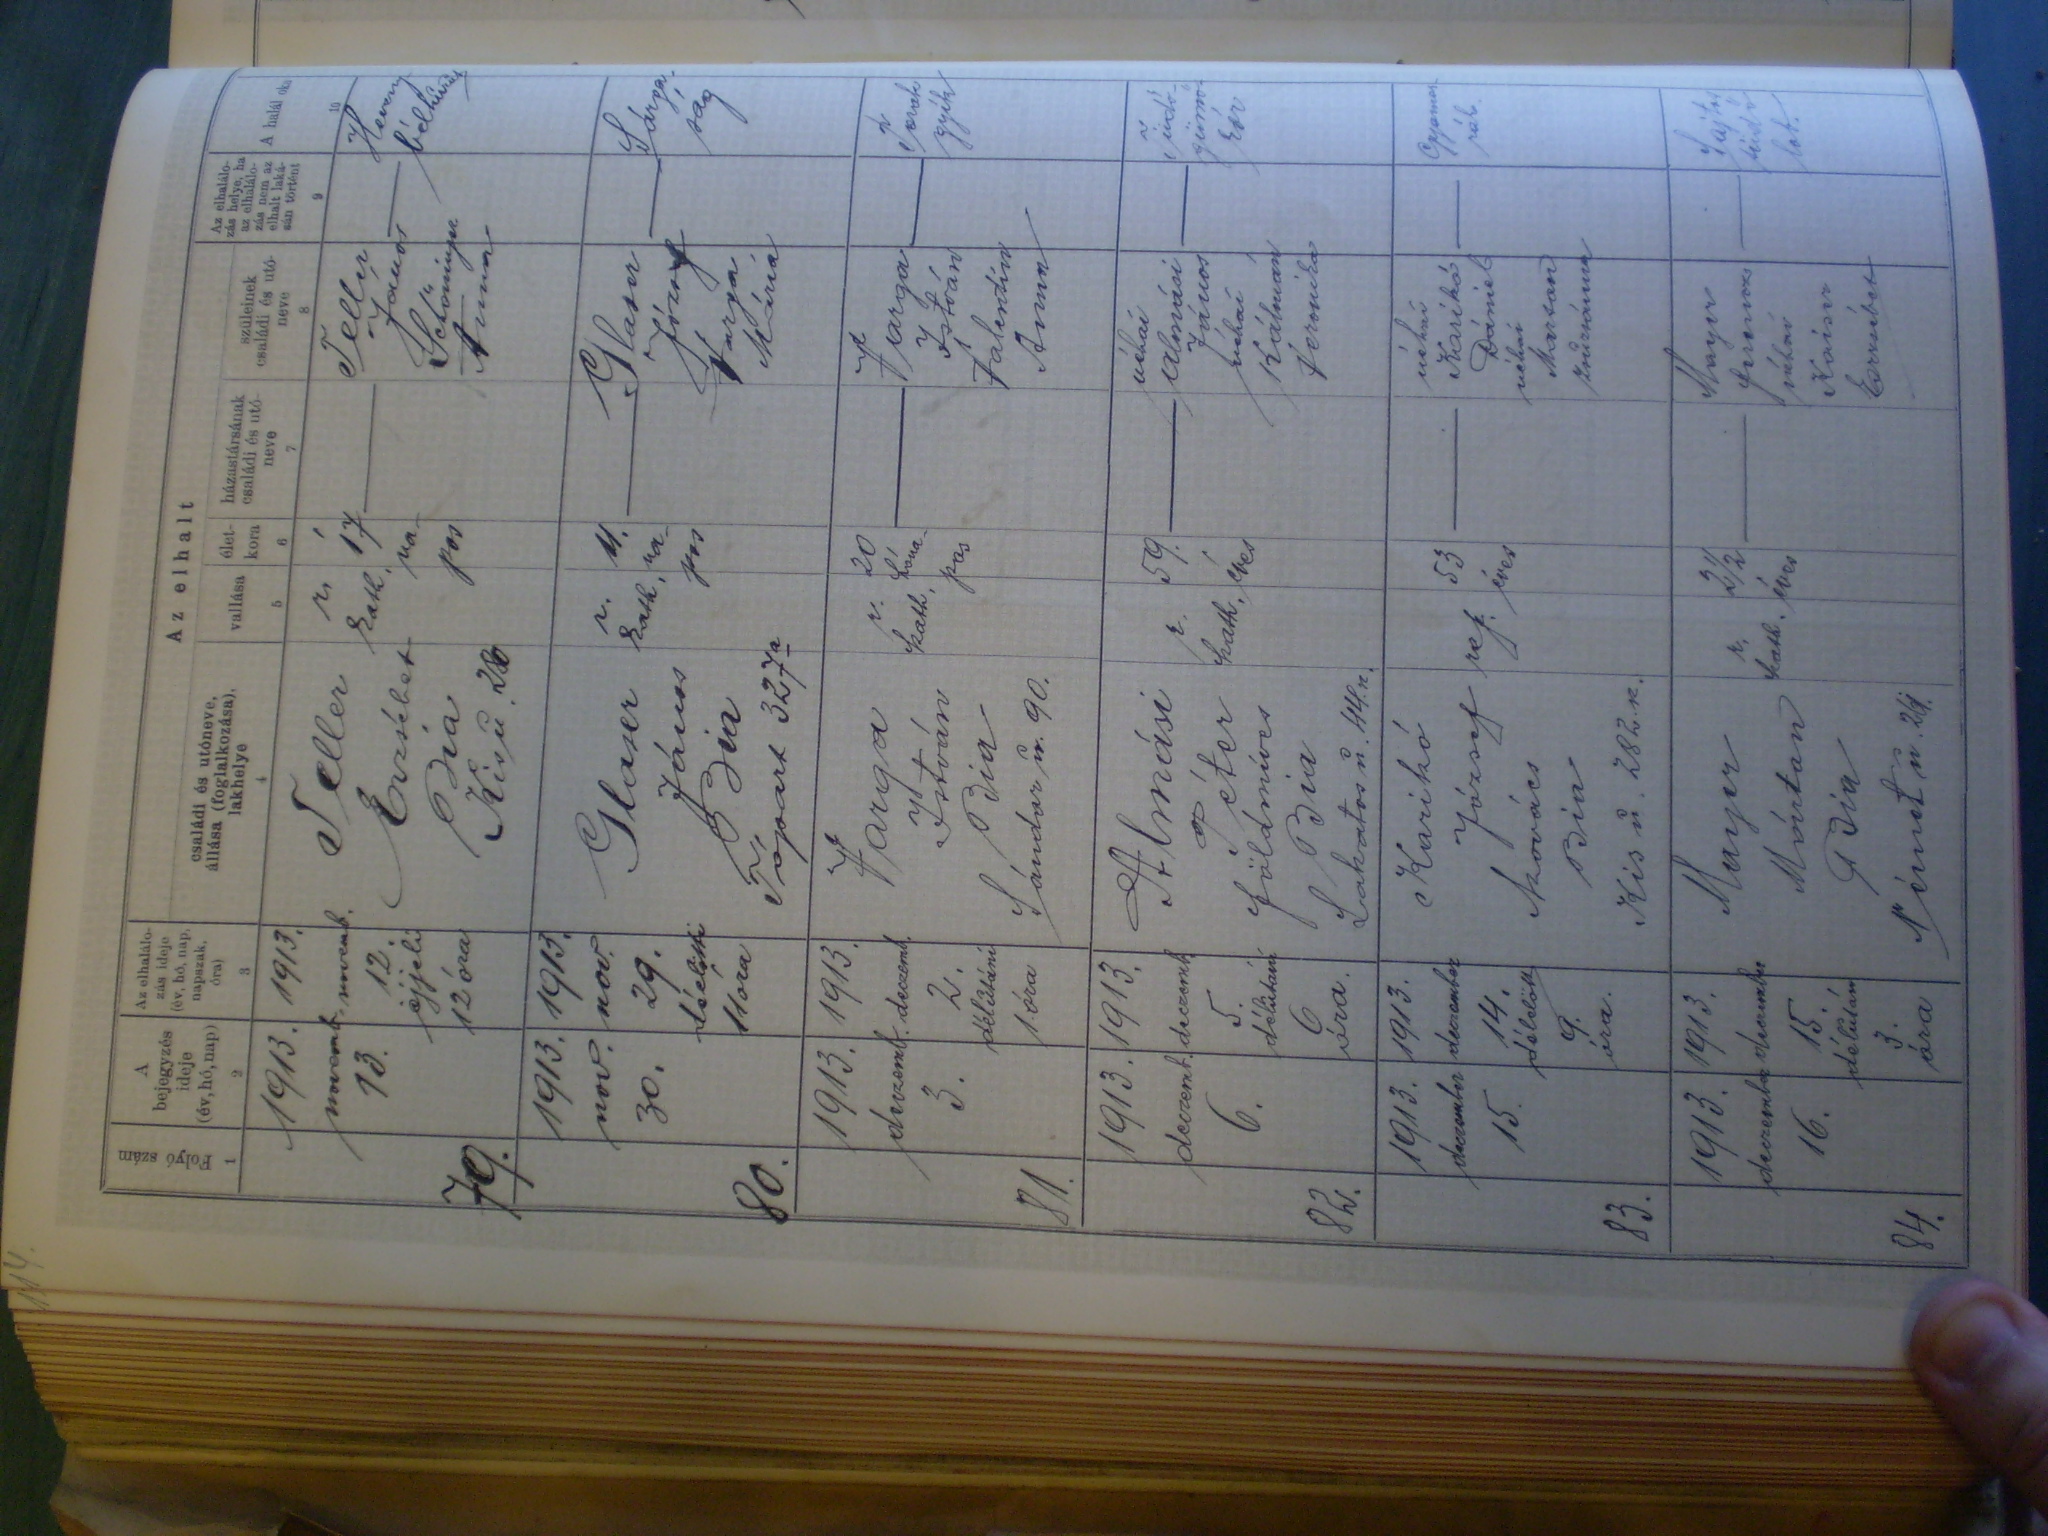 114.
Az elhalt
Folyó szám
A bejegyzés ideje (év, hó, nap)
Az elhalálozás ideje (év, hó, nap, napszak, óra)
családi és utóneve, állása (foglalkozása), lakhelye
vallása
élet-kora
házastársának családi és utóneve
szüleinek családi és utóneve
Az elhalálozás helye, ha az elhalálozás nem az elhalt lakásán történt
A halál oka
1
2
3
4
5
6
7
8
9
10
79.
1913.
novemb.
13.
1913.
novemb.
12.
éjjeli
12 óra
Teller
Erzsébet
Bia
Kis u.
r.
kath.
17
na-
pos
Teller
János
Anna
Heveny
bélhurut
80.
1913.
nov.
30.
1913.
nov.
29.
délelőtti
11 óra
Glaser
János
Bia
Tópart 327/a
r.
kath.
11.
na-
pos
Glaser
József
Varga
Mária
Sárga-
ság
81.
1913.
decemb.
3.
1913.
decemb.
2.
délutáni
1 óra
Varga
István
Bia
Sándor u. 90.
r.
kath.
20
hóna-
pos
Varga
István
Valentin
Anna
Torok
gyík
82.
1913.
decemb.
6.
1913.
decemb.
5.
délután
6
óra.
Almási
Péter
földmíves
Bia
Lakatos u. 44. sz.
r.
kath.
59.
éves
néhai
Almási
János
néhai
Kálmán
Veronika
Tüdő-
gümő-
kór
83.
1913.
december
15.
1913.
december
14.
délelőtt
9.
óra.
Karikó
József
kovács
Bia
Kis u. 282. sz.
ref.
53
éves
néhai
Karikó
Dániel
néhai
Zsuzsánna
Gyomor
rák.
84.
1913.
december
16.
1913.
december
15.
délután
3.
óra
Mayer
Márton
Bia
Német u.
r.
kath.
2 1/2
éves
Mayer
Ferencz
néhai
Kaiser
Erzsébet
tüdő
lob.